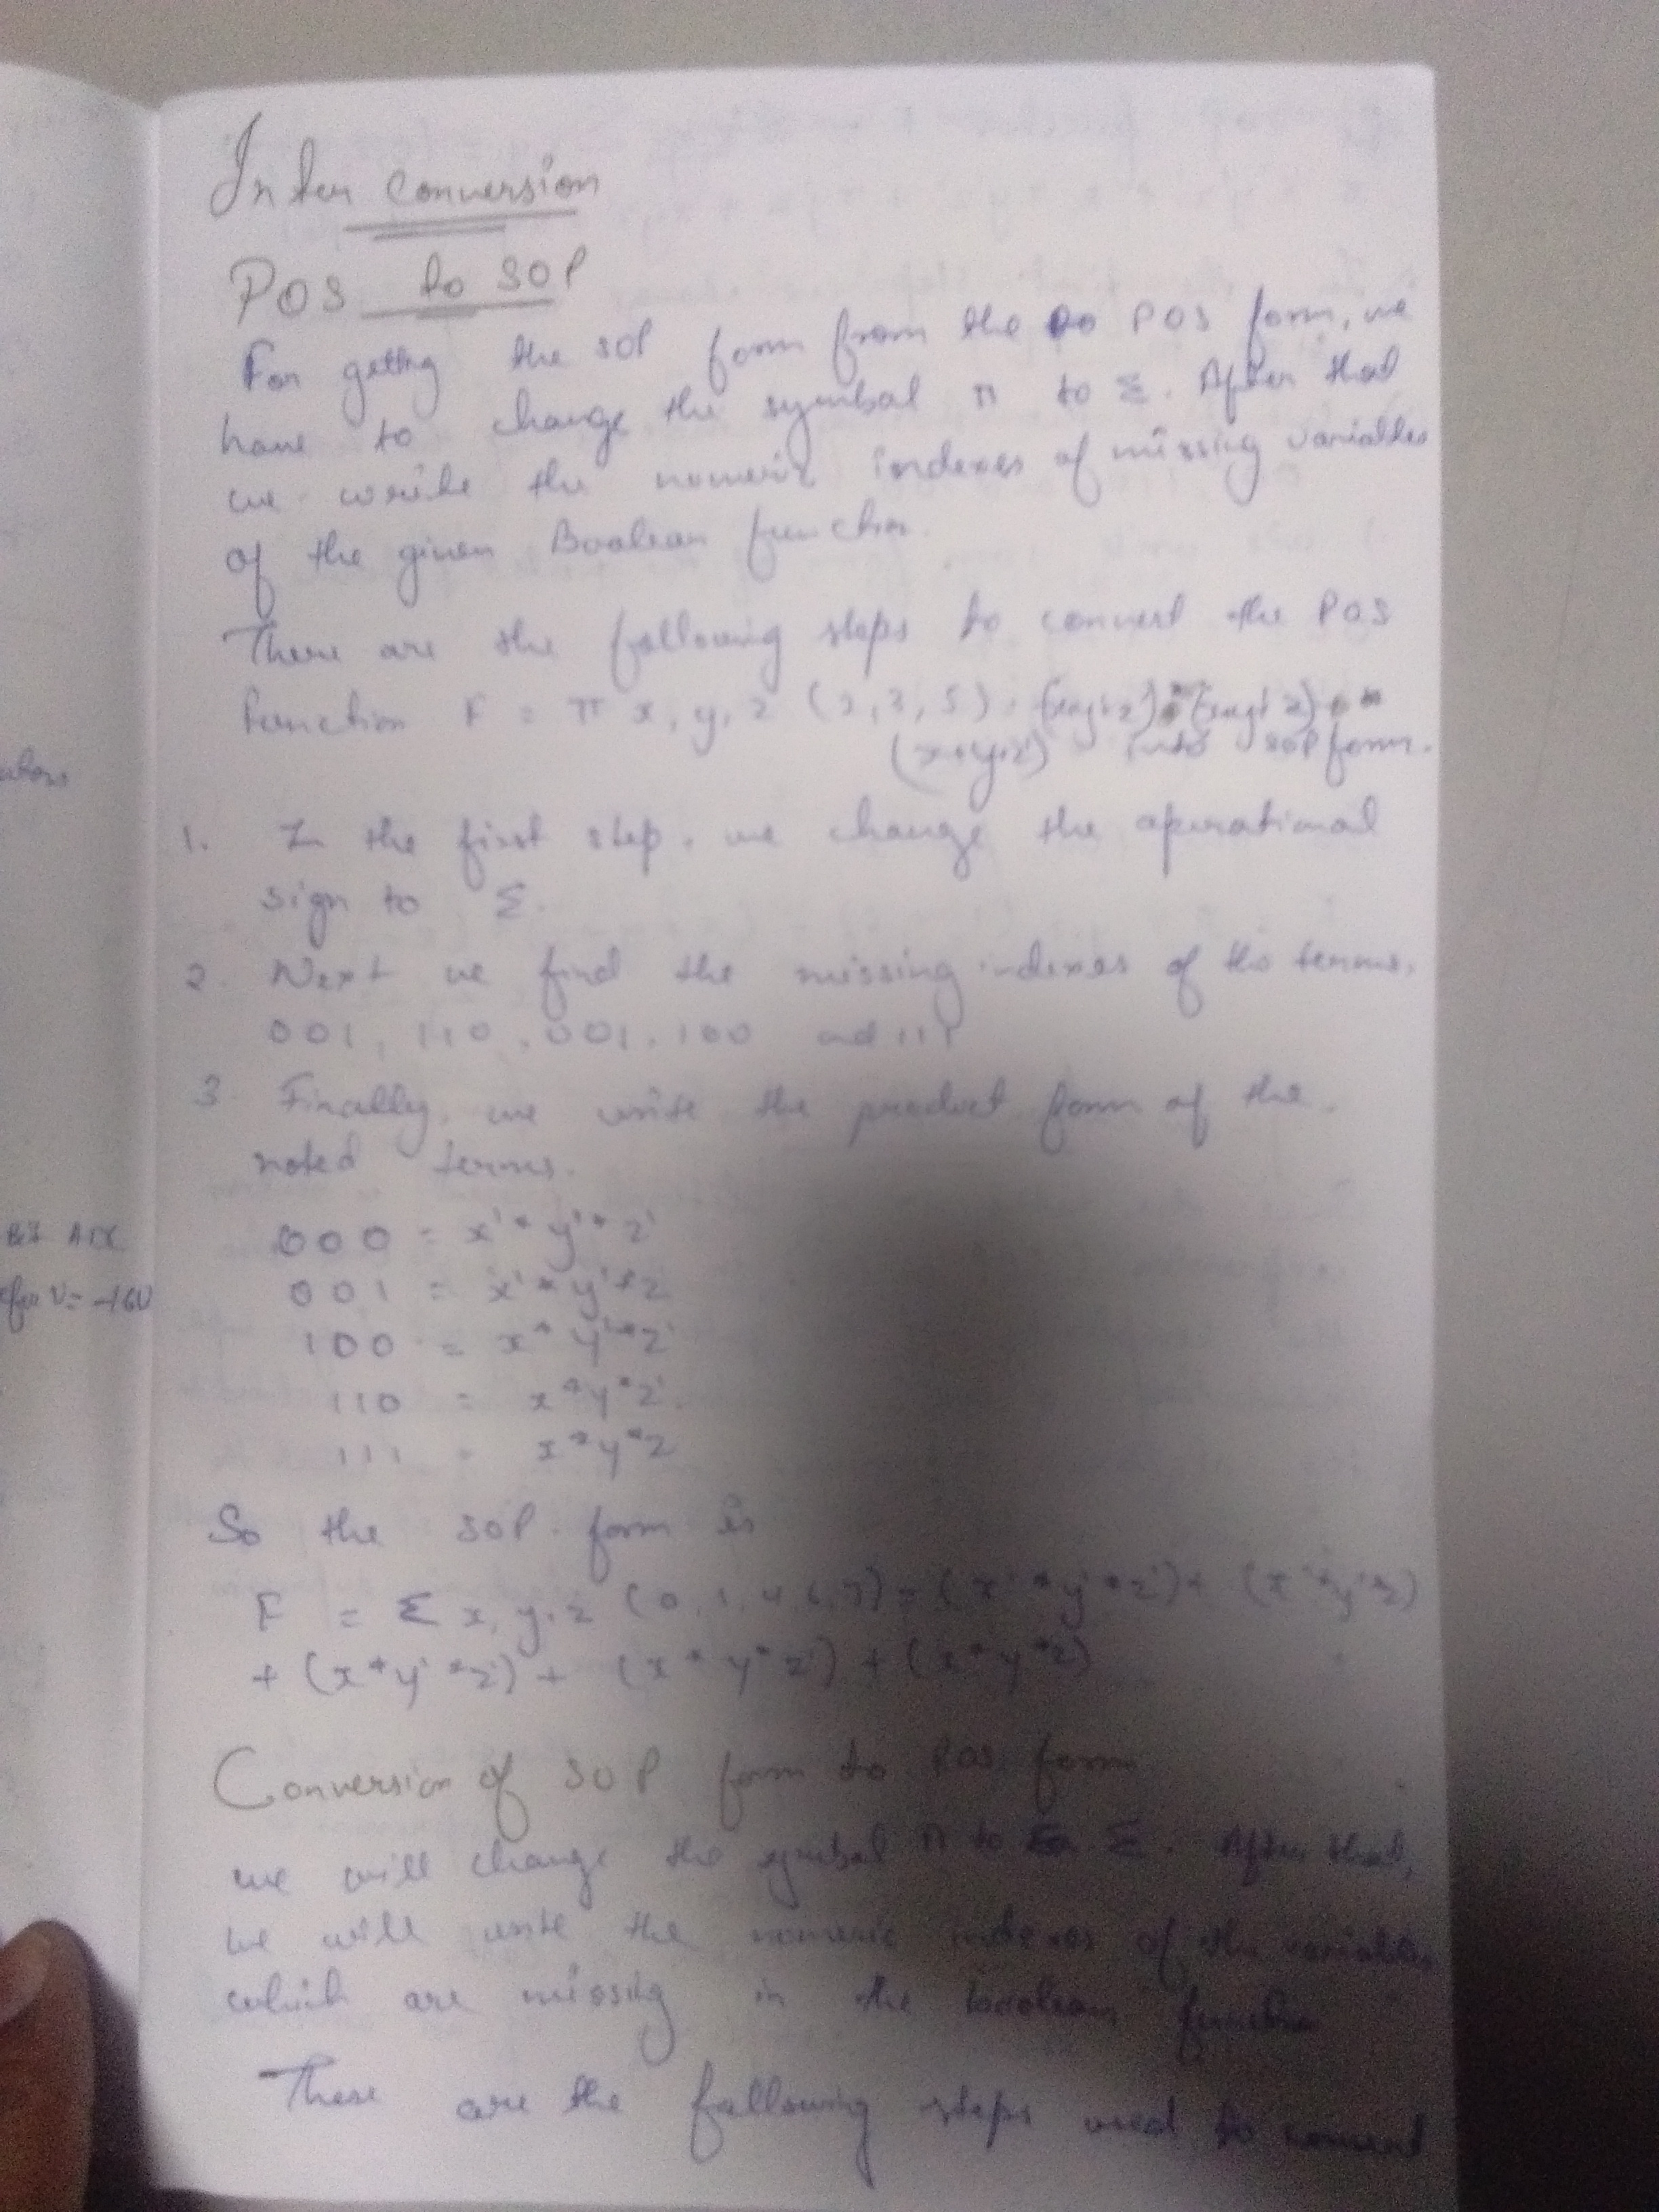 Inter conversion
POS to SOP
For getting the SOP form from the POS form, we
have to change the symbol π to Σ. After that
we write the numeric indexes of missing variables
of the given Boolean function.
There are the following steps to convert the POS
function F = π x, y, z (2, 3, 5)
into SOP form.
1. In the first step, we change the operational
sign to Σ.
2. Next we find the missing indexes of the terms,
001, 110, 001, 100 and 111
3. Finally, we write the product form of the
noted terms.
000 = x' * y' * z'
001 = x' * y' * z
100 = x * y' * z'
110 = x * y * z'
111 = x * y * z
So the SOP form is
F = Σ x, y, z (0, 1, 4, 6, 7) = (x' * y' * z') + (x' * y' * z)
+ (x * y' * z') + (x * y * z') + (x * y * z)
Conversion of SOP form to POS form
we will change the symbol π to Σ. After that,
we will write the numeric indexes of the variables
which are missing in the boolean function
There are the following steps used to convert
for V = -160